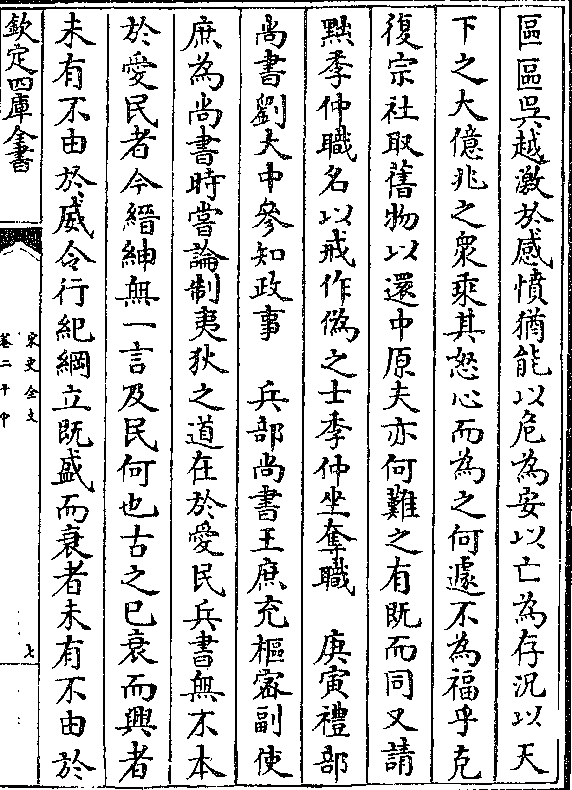 區區吳越激於感憤猶能以危為安以亡為存況以天
下之大億兆之衆乘其怒心而為之何遽不為福乎克
復宗社取舊物以還中原夫亦何難之有既而同又請
黜季仲職名以戒作偽之士季仲坐奪職　庚寅禮部
尚書劉大中參知政事　兵部尚書王庶充樞密副使
庶為尚書時嘗論制夷狄之道在於愛民兵書無不本
於愛民者今縉紳無一言及民何也古之已衰而興者
未有不由於威令行紀綱立既盛而衰者未有不由於
欽定四庫全書
宋史全文
卷二十中
七